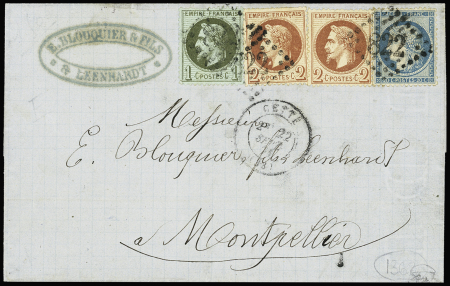 E. BLOUQUIER & FILS
& LEENHARDT
EMPIRE FRANÇAIS
1 C POSTES C 1
EMPIRE FRANÇAIS
2 C POSTES C 2
EMPIRE FRANÇAIS
2 C POSTES C 2
CETTE
22
Messieurs
E. Blouquier fils Leenhardt
a Montpellier